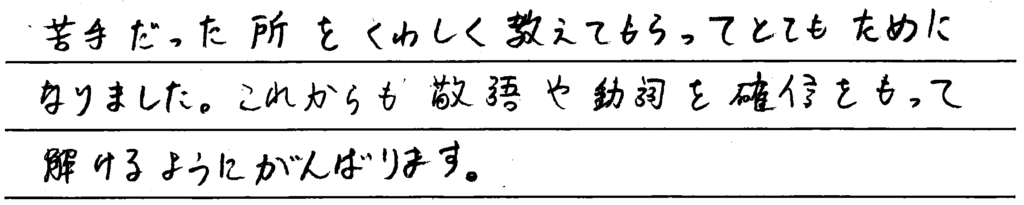 苦手だった所をくわしく教えてもらってとてもために
なりました。これからも敬語や動詞を確信をもって
解けるようにがんばります。